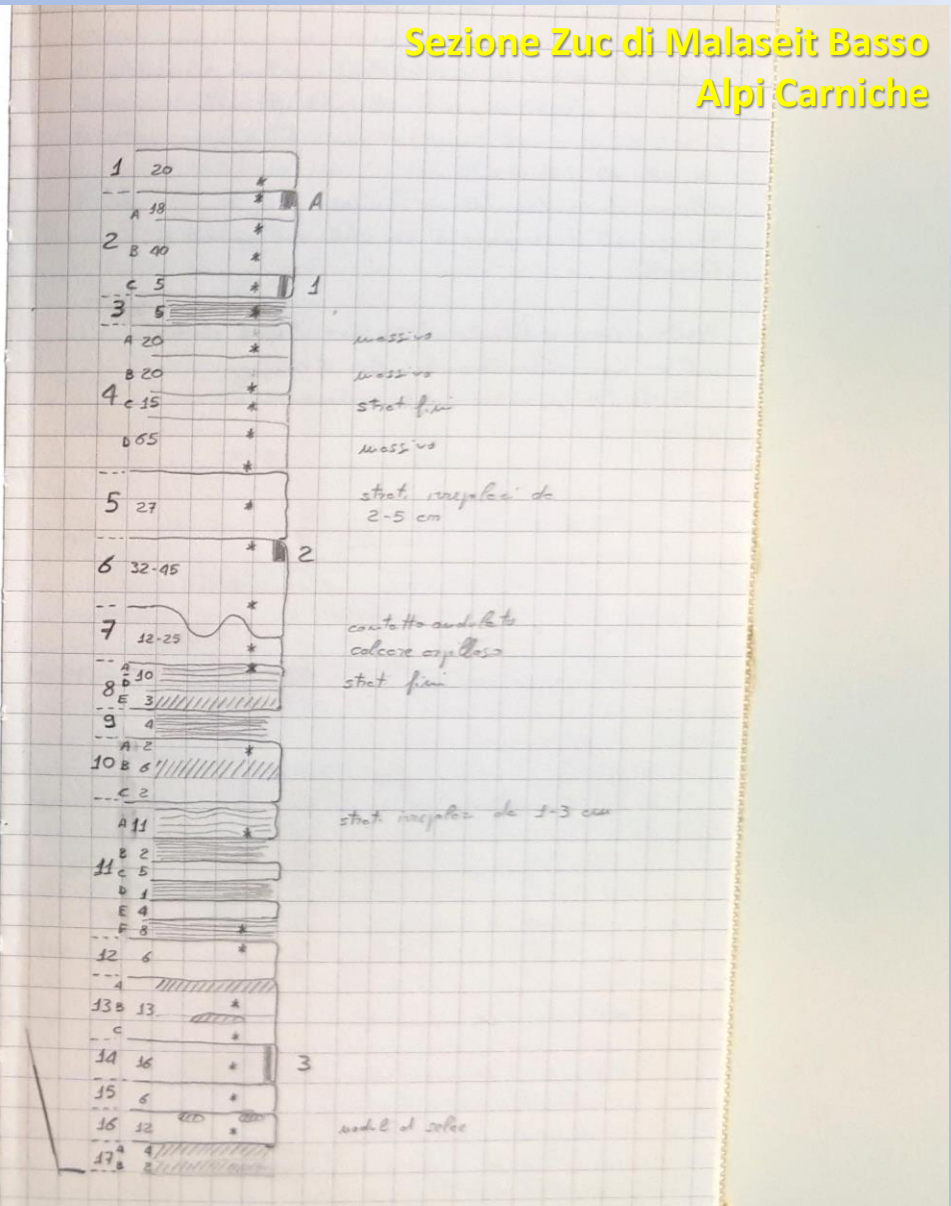 Sezione Zuc di Malaseit Basso
Alpi Carniche
1 20 *
A 18 * A
2 B 40 * *
C 5 * 1
3 5 *
A 20 * massivo
B 20 * massivo
4 C 15 * strat fini
D 65 * massivo
*
5 27 * strat. irregolari da
2-5 cm
6 32-45 * 2
*
7 12-25 * contatto ondulato
calcare argilloso
A *
8 D 10 strat fini
E 3
9 4
A 2 *
10 B 6
C 2
A 11 * strat. irregolari da 1-3 cm
B 2
11 C 5
D 1
E 4
F 8 *
12 6 *
A
13 B 13 *
C *
14 16 * 3
15 6 *
16 12 * noduli di selce
17 A 4
B 2